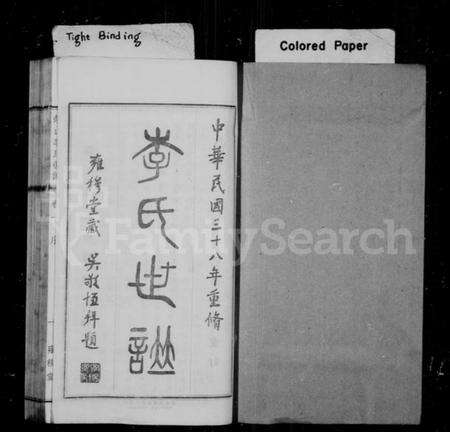 Tight Binding
Colored Paper
中華民國三十八年重脩
李氏世譜
雍穆堂藏 吳敬恆拜題
FamilySearch